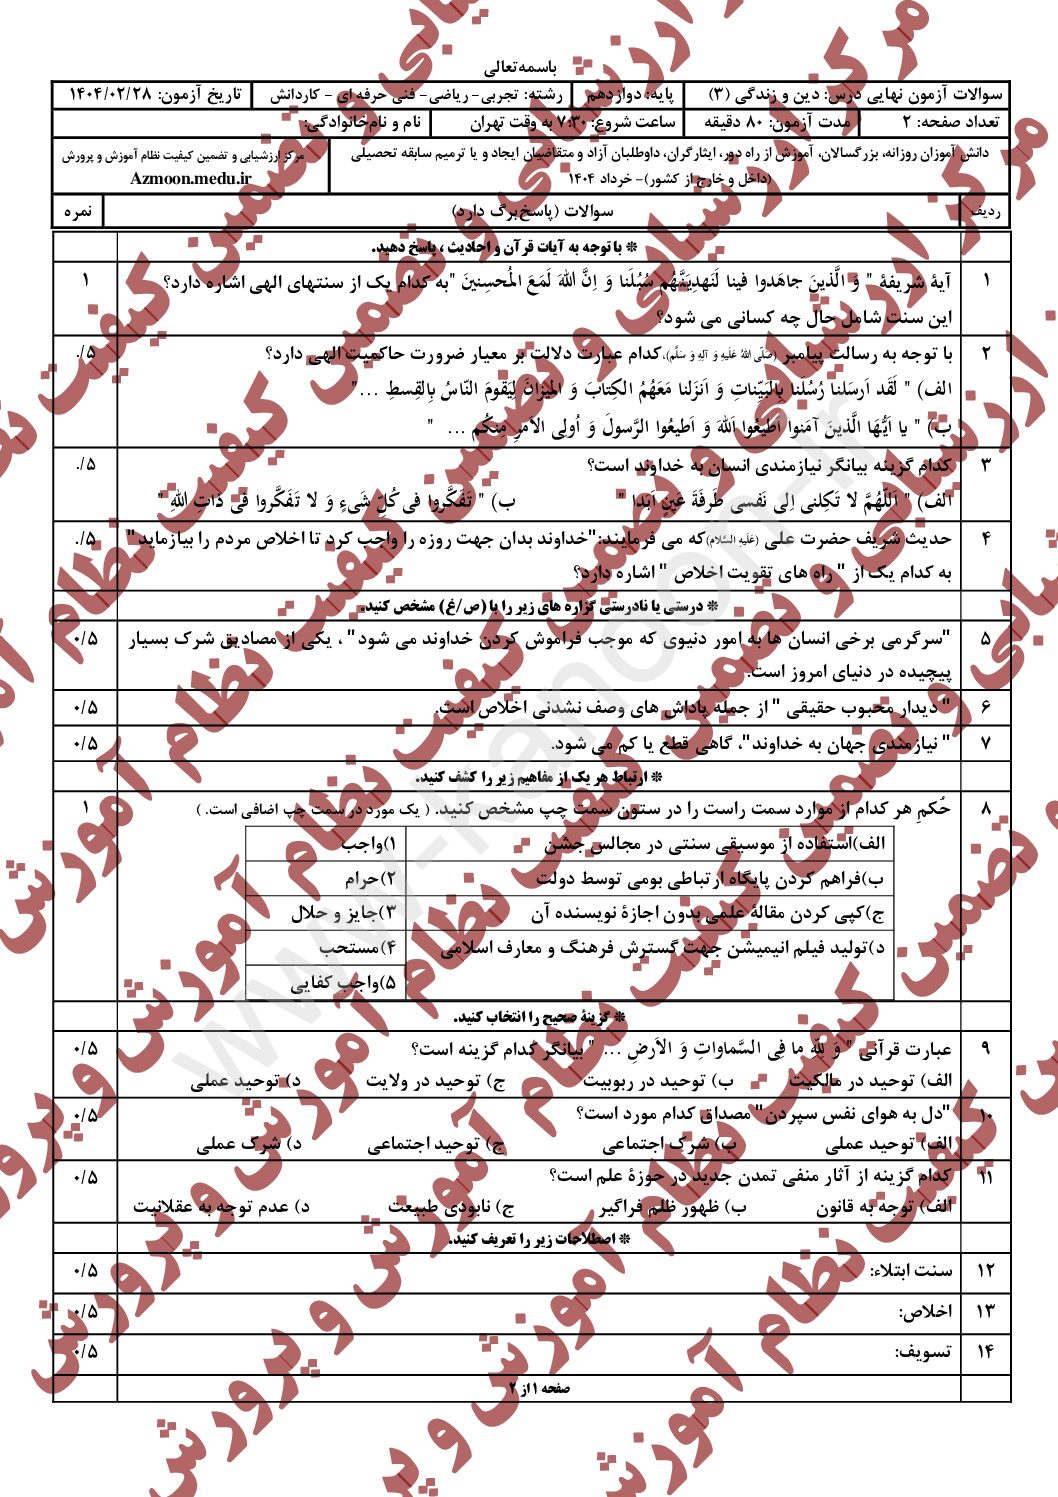 باسمه‌تعالی
سوالات آزمون نهایی درس: دین و زندگی (۳) پایه: دوازدهم رشته: تجربی- ریاضی- فنی حرفه ای - کاردانش تاریخ آزمون: ۱۴۰۴/۰۲/۲۸
تعداد صفحه: ۲ مدت آزمون: ۸۰ دقیقه ساعت شروع: ۷:۳۰ به وقت تهران نام و نام‌خانوادگی:
دانش آموزان روزانه، بزرگسالان، آموزش از راه دور، ایثارگران، داوطلبان آزاد و متقاضیان ایجاد و یا ترمیم سابقه تحصیلی
(داخل و خارج از کشور)- خرداد ۱۴۰۴
مرکز ارزشیابی و تضمین کیفیت نظام آموزش و پرورش
Azmoon.medu.ir
ردیف سوالات (پاسخ‌برگ دارد) نمره
* با توجه به آیات قرآن و احادیث ، پاسخ دهید.
۱ آیهٔ شریفهٔ " وَ الَّذینَ جاهَدوا فینا لَنَهدِیَنَّهُم سُبُلَنا وَ اِنَّ اللهَ لَمَعَ المُحسِنینَ "به کدام یک از سنتهای الهی اشاره دارد؟ ۱
این سنت شامل حال چه کسانی می شود؟
۲ با توجه به رسالت پیامبر (صَلَّی اللهُ عَلَیهِ وَ آلِهِ وَ سَلَّم)،کدام عبارت دلالت بر معیار ضرورت حاکمیت الهی دارد؟ ۵/.
الف) " لَقَد اَرسَلنا رُسُلَنا بِالبَیِّناتِ وَ اَنزَلنا مَعَهُمُ الکِتابَ وَ المیزانَ لِیَقومَ النّاسُ بِالقِسطِ ... "
ب) " یا اَیُّهَا الَّذینَ آمَنوا اَطیعُوا اللهَ وَ اَطیعُوا الرَّسولَ وَ اُولِی الاَمرِ مِنکُم ... "
۳ کدام گزینه بیانگر نیازمندی انسان به خداوند است؟ ۵/.
الف) " اَللّهُمَّ لا تَکِلنی اِلی نَفسی طَرفَةَ عَینٍ اَبَدا " ب) " تَفَکَّروا فی کُلِّ شَیءٍ وَ لا تَفَکَّروا فی ذاتِ اللهِ "
۴ حدیث شریف حضرت علی (عَلَیهِ السَّلام)که می فرمایند:"خداوند بدان جهت روزه را واجب کرد تا اخلاص مردم را بیازماید" ۵/.
به کدام یک از " راه های تقویت اخلاص " اشاره دارد؟
* درستی یا نادرستی گزاره های زیر را با (ص/غ) مشخص کنید.
۵ "سرگرمی برخی انسان ها به امور دنیوی که موجب فراموش کردن خداوند می شود" ، یکی از مصادیق شرک بسیار ۰/۵
پیچیده در دنیای امروز است.
۶ " دیدار محبوب حقیقی " از جمله پاداش های وصف نشدنی اخلاص است. ۰/۵
۷ " نیازمندی جهان به خداوند"، گاهی قطع یا کم می شود. ۰/۵
* ارتباط هر یک از مفاهیم زیر را کشف کنید.
۸ حُکمِ هر کدام از موارد سمت راست را در ستون سمت چپ مشخص کنید. ( یک مورد در سمت چپ اضافی است. ) ۱
الف)استفاده از موسیقی سنتی در مجالس جشن ۱)واجب
ب)فراهم کردن پایگاه ارتباطی بومی توسط دولت ۲)حرام
ج)کپی کردن مقالهٔ علمی بدون اجازهٔ نویسنده آن ۳)جایز و حلال
د)تولید فیلم انیمیشن جهت گسترش فرهنگ و معارف اسلامی ۴)مستحب
۵)واجب کفایی
* گزینهٔ صحیح را انتخاب کنید.
۹ عبارت قرآنی " وَ لِلّهِ ما فِی السَّماواتِ وَ الاَرضِ ... " بیانگر کدام گزینه است؟ ۰/۵
الف) توحید در مالکیت ب) توحید در ربوبیت ج) توحید در ولایت د) توحید عملی
۱۰ "دل به هوای نفس سپردن" مصداق کدام مورد است؟ ۰/۵
الف) توحید عملی ب) شرک اجتماعی ج) توحید اجتماعی د) شرک عملی
۱۱ کدام گزینه از آثار منفی تمدن جدید در حوزهٔ علم است؟ ۰/۵
الف) توجه به قانون ب) ظهور ظلم فراگیر ج) نابودی طبیعت د) عدم توجه به عقلانیت
* اصطلاحات زیر را تعریف کنید.
۱۲ سنت ابتلاء: ۰/۵
۱۳ اخلاص: ۰/۵
۱۴ تسویف: ۰/۵
صفحه ۱ از ۲
مرکز ارزشیابی و تضمین کیفیت نظام آموزش و پرورش
www-kanoon-ir